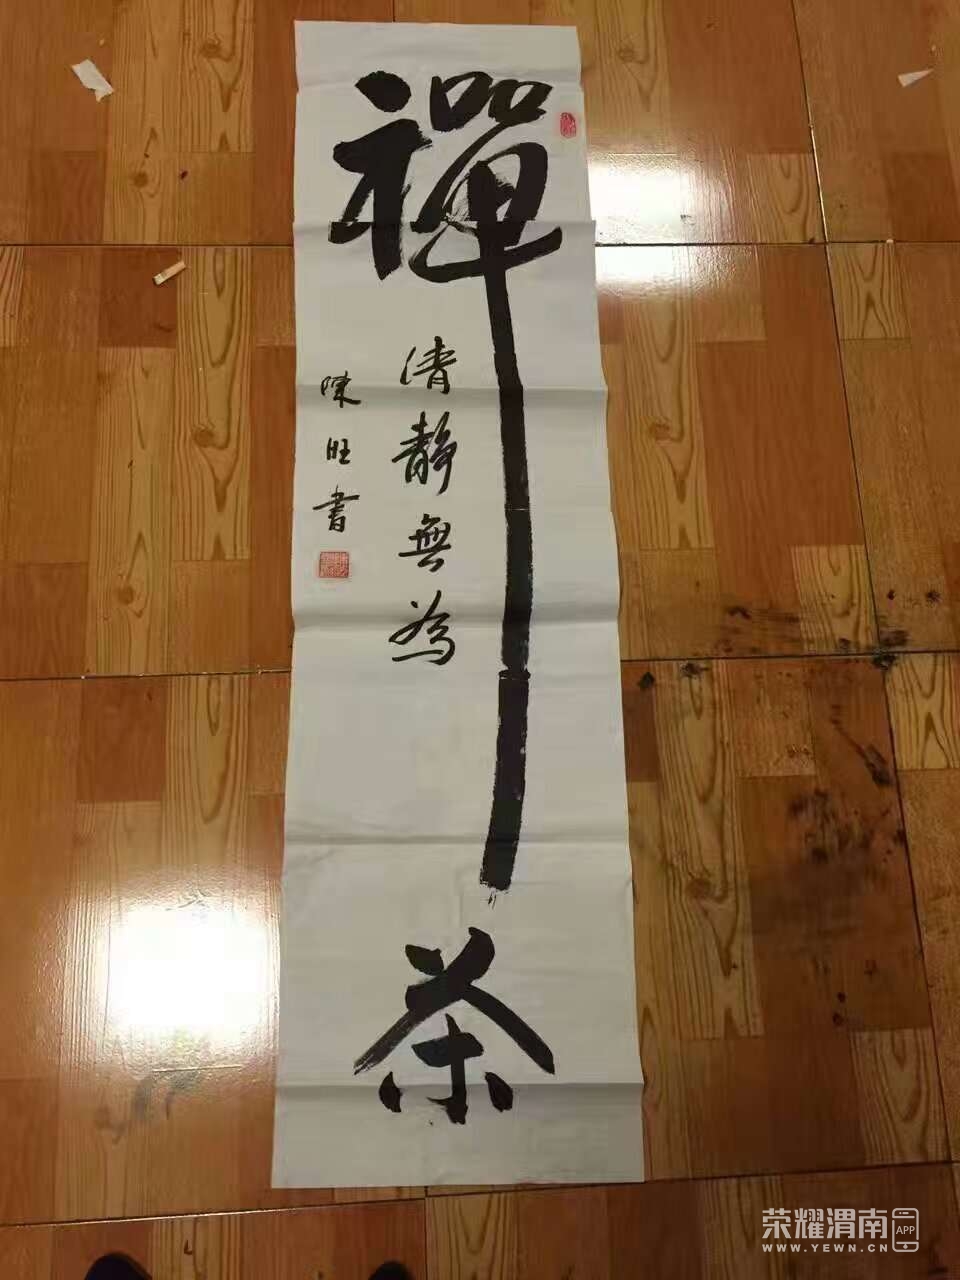 禪茶
清靜無為
陳旺書
荣耀渭南
APP
WWW.YEWN.CN